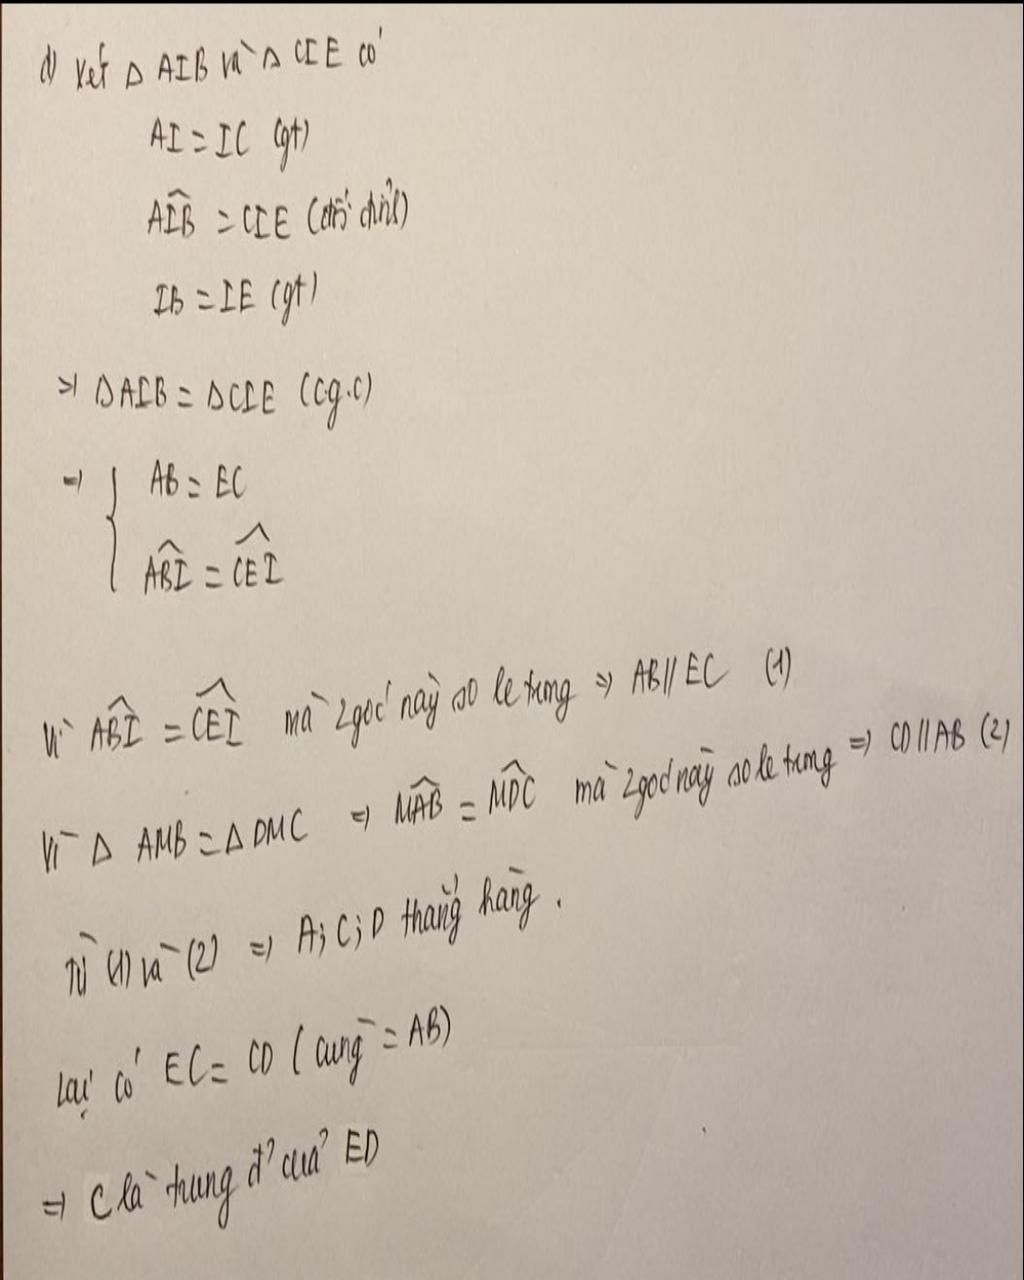 d) Xét Δ AIB và Δ CIE có
AI = IC (gt)
AIB = CIE (đối đỉnh)
IB = IE (gt)
=> ΔAIB = ΔCIE (cg.c)
=> { AB = EC
ABI = CEI
Vì ABI = CEI mà 2 góc này so le trong => AB // EC (1)
Vì Δ AMB = Δ DMC => MAB = MDC mà 2 góc này so le trong => CD // AB (2)
Từ (1) và (2) => A; C; D thẳng hàng.
Lại có EC = CD (cùng = AB)
=> C là trung đ' của ED